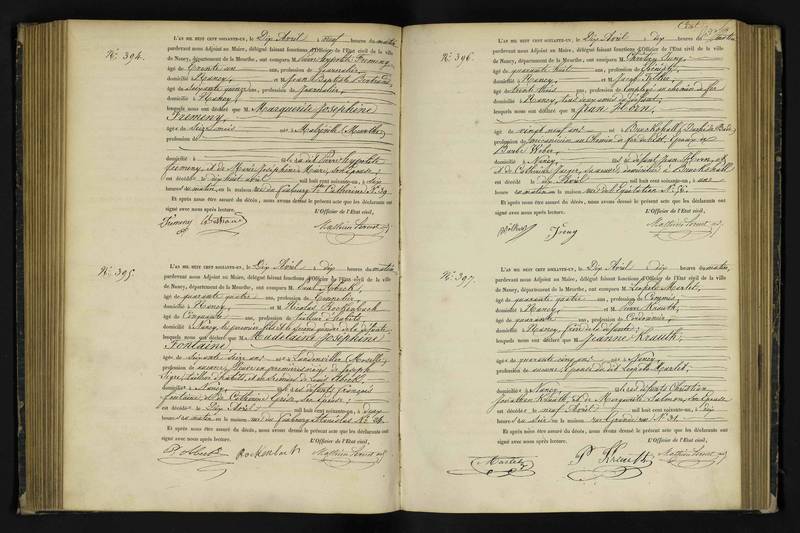 N.o 394.
L'AN MIL HUIT CENT SOIXANTE-UN, le Dix Avril à neuf heures du matin
pardevant nous Adjoint au Maire, délégué faisant fonctions d'Officier de l'Etat civil de la ville
de Nancy, département de la Meurthe, ont comparu M. Pierre hypolite Fremeny,
âgé de trente un ans, profession de Journalier,
domicilié à Nancy, et M. Jean Baptiste Bertrand,
âgé de soixante quinze ans, profession de Journalier,
domicilié à Nancy,
lesquels nous ont déclaré que M. Marguerite Josephine
Fremeny,
âgée de seize mois née à Malzéville (Meurthe)
profession de
domicilié à fille du dit Pierre hypolite
fremeny et de Marie Joséphine Maire, son Epouse;
est décédée le dix huit avril mil huit cent soixante-un, à six
heures du matin, en la maison rue du faubourg Ste Catherine N.o 39.
Et après nous être assuré du décès, nous avons dressé le présent acte que les déclarants ont
signé avec nous après lecture. L'Officier de l'Etat civil,
Fremeny Bertrand
N.o 395.
L'AN MIL HUIT CENT SOIXANTE-UN, le Dix Avril à dix heures du matin,
pardevant nous Adjoint au Maire, délégué faisant fonctions d'Officier de l'Etat civil de la ville
de Nancy, département de la Meurthe, ont comparu M.
âgé de quarante quatre ans, profession de Tonnelier,
domicilié à Nancy, et M. Nicolas Rockenbach
âgé de Cinquante ans, profession de tailleur d'habits,
domicilié à Nancy, le premier fils et le second gendre de la défunte,
lesquels nous ont déclaré que M. Madelaine Josephine
Fontaine
âgée de soixante seize ans née à (Moselle)
profession de Veuve en premières noces de Joseph
tailleur d'habits, et en
domiciliée à Nancy, fille des défunts françois
fontaine et de Catherine son Epouse;
est décédée le Dix Avril mil huit cent soixante-un, à deux
heures du matin en la maison rue du faubourg Stanislas N.o 24.
Et après nous être assuré du décès, nous avons dressé le présent acte que les déclarants ont
signé avec nous après lecture. L'Officier de l'Etat civil,
Rockenbach
N.o 396.
L'AN MIL HUIT CENT SOIXANTE-UN, le Dix Avril à dix heures du matin
pardevant nous Adjoint au Maire, délégué faisant fonctions d'Officier de l'Etat civil de la ville
de Nancy, département de la Meurthe, ont comparu M.
âgé de quarante huit ans, profession de
domicilié à Nancy, et M.
âgé de trente huit ans, profession de Employé au chemin de fer
domicilié à Nancy, tous deux amis du défunt;
lesquels nous ont déclaré que M. Jean Horn,
âgé de vingt neuf ans né à (Duché de Bade)
profession de mécanicien au Chemin de fer de l'Est, Epoux de
Barbe Weber,
domicilié à Nancy, fils de défunt Jean Horn et
de Catherine
est décédé le dix Avril mil huit cent soixante-un, à une
heure du matin en la maison rue de l'Equitation N.o 56.
Et après nous être assuré du décès, nous avons dressé le présent acte que les déclarants ont
signé avec nous après lecture. L'Officier de l'Etat civil,
N.o 397.
L'AN MIL HUIT CENT SOIXANTE-UN, le Dix Avril à dix heures du matin,
pardevant nous Adjoint au Maire, délégué faisant fonctions d'Officier de l'Etat civil de la ville
de Nancy, département de la Meurthe, ont comparu M. Léopold Martel,
âgé de quarante quatre ans, profession de Commis,
domicilié à Nancy, et M. Pierre Krauth,
âgé de quarante ans, profession de Cordonnier,
domicilié à Nancy, frère de la défunte;
lesquels nous ont déclaré que M. Jeanne Krauth,
âgée de quarante cinq ans née à Nancy
profession de aucune, Epouse du dit Léopold Martel,
domiciliée à Nancy, fille des défunts Christian
Jonathan Krauth et de Marguerite Salmon, son Epouse
est décédée le neuf Avril mil huit cent soixante-un, à dix
heures du soir en la maison rue Grande rue N.o 31.
Et après nous être assuré du décès, nous avons dressé le présent acte que les déclarants ont
signé avec nous après lecture. L'Officier de l'Etat civil,
Martel P. Krauth